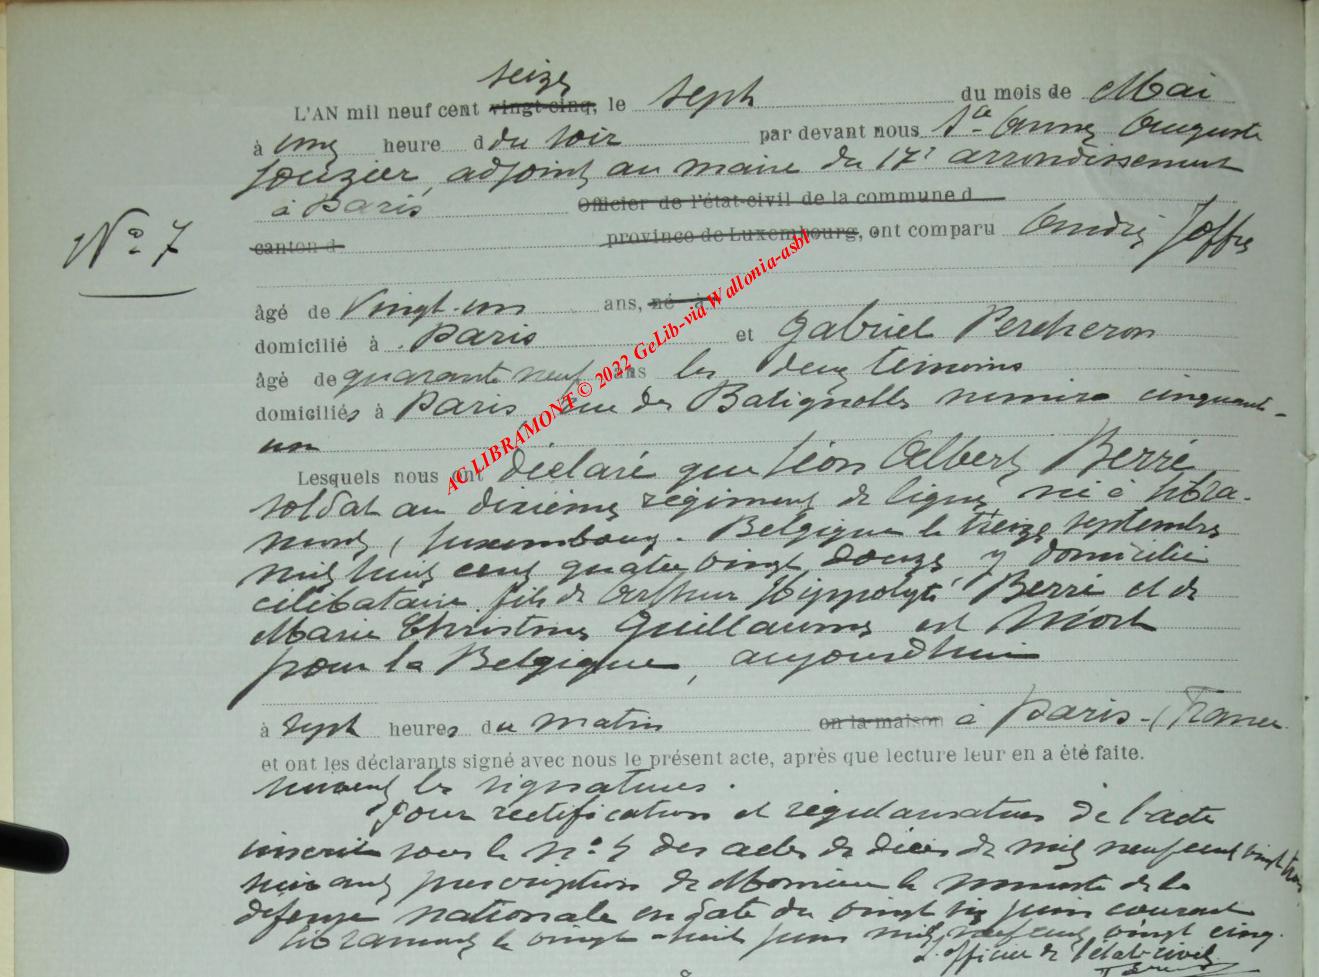 seize
L'AN mil neuf cent vingt-cinq, le sept du mois de Mai
à cinq heure d du soir par devant nous Auguste
Jouzier, adjoint au maire du 17e arrondissement
à Paris Officier de l'état-civil de la commune d
N° 7
canton d province de Luxembourg, ont comparu André Joffre
âgé de Vingt-un ans, né à
domicilié à Paris et Gabriel Percheron
âgé de quarante neuf ans les deux témoins
domiciliés à Paris, rue des Batignolles numéro cinquante-
un
Lesquels nous ont déclaré que Léon Albert Berré
soldat au dixième régiment de ligne, né à Libra-
mont, Luxembourg. Belgique le treize septembre
mil huit cent quatre vingt douze, y domicilié
célibataire, fils de Arthur Hippolyte Berré et de
Marie Christine Guillaume est Mort
pour la Belgique, aujourd'hui
à sept heures du matin en la maison à Paris - (France
et ont les déclarants signé avec nous le présent acte, après que lecture leur en a été faite.
suivent les signatures.
Pour rectification et régularisation de l'acte
inscrit sous le n° 5 des actes de décès de mil neuf cent vingt trois
suivant prescription de Monsieur le ministre de la
défense nationale en date du vingt six juin courant
Libramont le vingt-huit juin mil neuf cent vingt cinq.
L'officier de l'état civil
AC LIBRAMONT © 2022 GeLib-via Wallonia-asbl